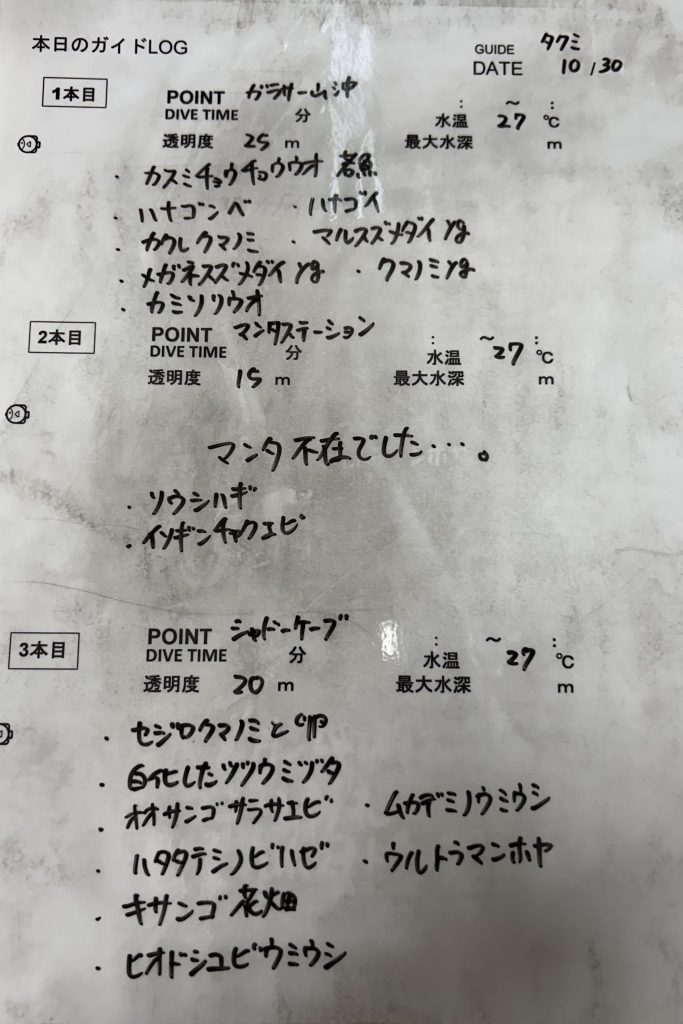 本日のガイドLOG
GUIDE タクミ
DATE 10/30
1本目
POINT ガラサー山沖
DIVE TIME 分 : ~ :
水温 27 ℃
透明度 25 m 最大水深 m
・カスミチョウチョウウオ 若魚
・ハナゴンベ ・ハナゴイ
・カクレクマノミ ・マルスズメダイyg
・メガネスズメダイyg ・クマノミyg
・カミソリウオ
2本目
POINT マンタステーション
DIVE TIME 分 : ~ :
水温 27 ℃
透明度 15 m 最大水深 m
マンタ不在でした…。
・ソウシハギ
・イソギンチャクエビ
3本目
POINT シャドーケーブ
DIVE TIME 分 : ~ :
水温 27 ℃
透明度 20 m 最大水深 m
・セジロクマノミと卵
・白化したツツウミヅタ
・オオサンゴサラサエビ ・ムカデミノウミウシ
・ハタタテシノビハゼ ・ウルトラマンホヤ
・キサンゴ花畑
・ヒオドシユビウミウシ